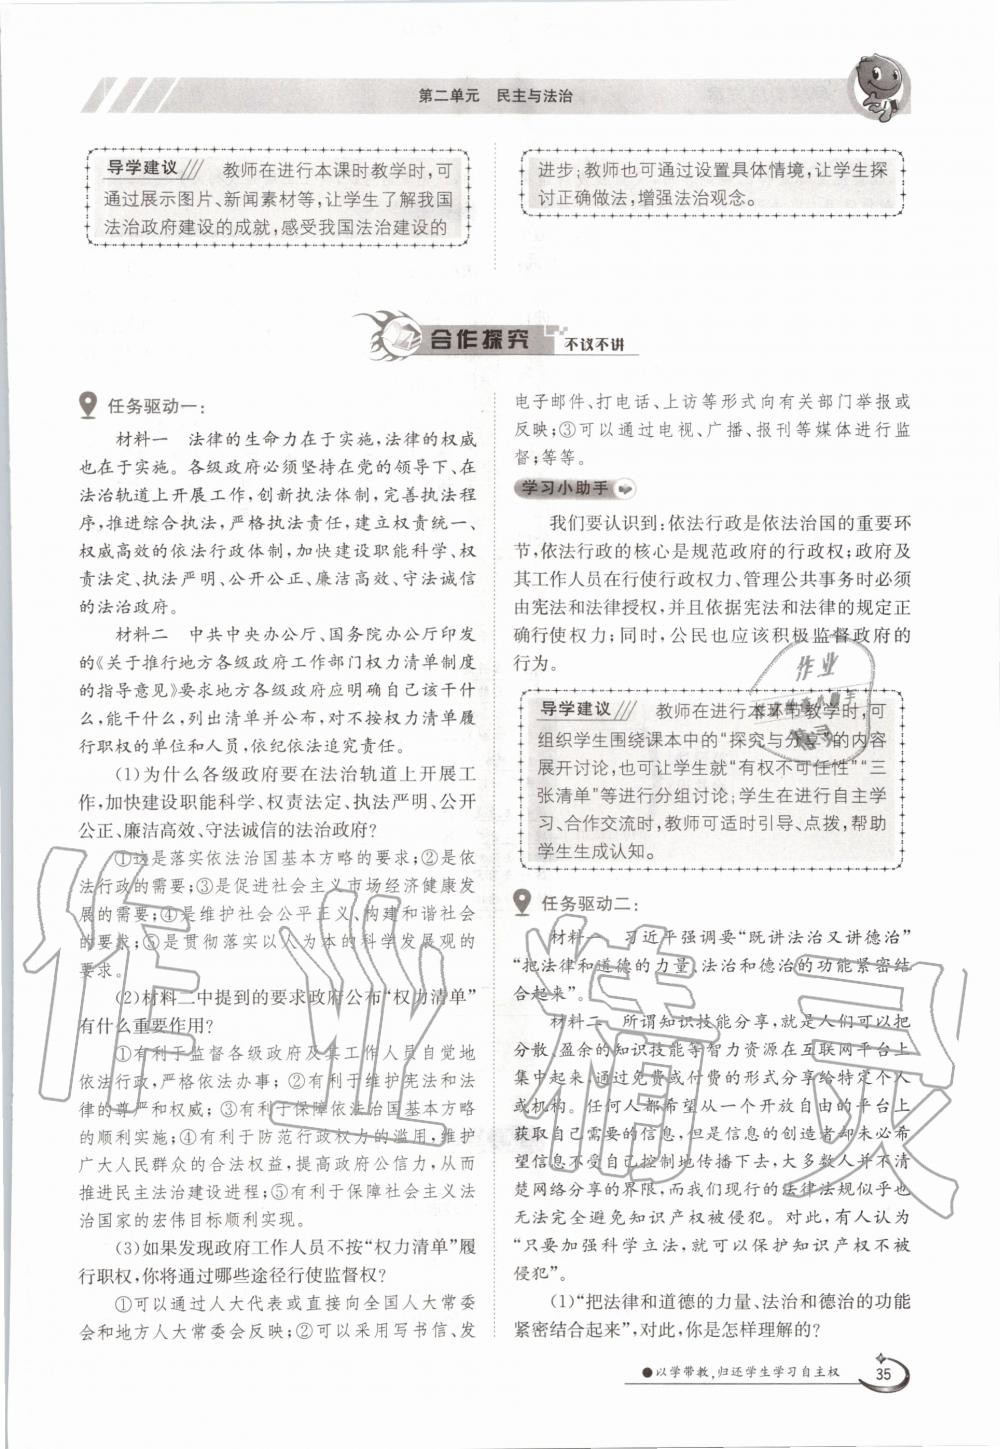 第二单元　民主与法治
导学建议 教师在进行本课时教学时,可
通过展示图片、新闻素材等,让学生了解我国
法治政府建设的成就,感受我国法治建设的
进步;教师也可通过设置具体情境,让学生探
讨正确做法,增强法治观念。
合作探究 不议不讲
任务驱动一:
材料一　法律的生命力在于实施,法律的权威
也在于实施。各级政府必须坚持在党的领导下、在
法治轨道上开展工作,创新执法体制,完善执法程
序,推进综合执法,严格执法责任,建立权责统一、
权威高效的依法行政体制,加快建设职能科学、权
责法定、执法严明、公开公正、廉洁高效、守法诚信
的法治政府。
材料二　中共中央办公厅、国务院办公厅印发
的《关于推行地方各级政府工作部门权力清单制度
的指导意见》要求地方各级政府应明确自己该干什
么,能干什么,列出清单并公布,对不按权力清单履
行职权的单位和人员,依纪依法追究责任。
(1)为什么各级政府要在法治轨道上开展工
作,加快建设职能科学、权责法定、执法严明、公开
公正、廉洁高效、守法诚信的法治政府?
①这是落实依法治国基本方略的要求;②是依
法行政的需要;③是促进社会主义市场经济健康发
展的需要;④是维护社会公平正义、构建和谐社会
的要求;⑤是贯彻落实以人为本的科学发展观的
要求。
(2)材料二中提到的要求政府公布“权力清单”
有什么重要作用?
①有利于监督各级政府及其工作人员自觉地
依法行政,严格依法办事;②有利于维护宪法和法
律的尊严和权威;③有利于保障依法治国基本方略
的顺利实施;④有利于防范行政权力的滥用,维护
广大人民群众的合法权益,提高政府公信力,从而
推进民主法治建设进程;⑤有利于保障社会主义法
治国家的宏伟目标顺利实现。
(3)如果发现政府工作人员不按“权力清单”履
行职权,你将通过哪些途径行使监督权?
①可以通过人大代表或直接向全国人大常委
会和地方人大常委会反映;②可以采用写书信、发
电子邮件、打电话、上访等形式向有关部门举报或
反映;③可以通过电视、广播、报刊等媒体进行监
督;等等。
学习小助手
我们要认识到:依法行政是依法治国的重要环
节,依法行政的核心是规范政府的行政权;政府及
其工作人员在行使行政权力、管理公共事务时必须
由宪法和法律授权,并且依据宪法和法律的规定正
确行使权力;同时,公民也应该积极监督政府的
行为。
导学建议 教师在进行本环节教学时,可
组织学生围绕课本中的“探究与分享”的内容
展开讨论,也可让学生就“有权不可任性”“三
张清单”等进行分组讨论;学生在进行自主学
习、合作交流时,教师可适时引导、点拨,帮助
学生生成认知。
任务驱动二:
材料一　习近平强调要“既讲法治又讲德治”
“把法律和道德的力量、法治和德治的功能紧密结
合起来”。
材料二　所谓知识技能分享,就是人们可以把
分散、盈余的知识技能等智力资源在互联网平台上
集中起来,通过免费或付费的形式分享给特定个人
或机构。任何人都希望从一个开放自由的平台上
获取自己需要的信息,但是信息的创造者却未必希
望信息不受自己控制地传播下去,大多数人并不清
楚网络分享的界限,而我们现行的法律法规似乎也
无法完全避免知识产权被侵犯。对此,有人认为
“只要加强科学立法,就可以保护知识产权不被
侵犯”。
(1)“把法律和道德的力量、法治和德治的功能
紧密结合起来”,对此,你是怎样理解的?
●以学带教,归还学生学习自主权
35
作业精灵
作业